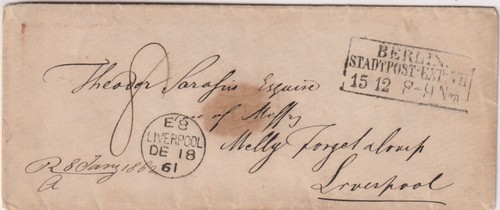 BERLIN
STADTPOST-EXP. VII
15 12 8-9 Nm
8
Theodor Sarasin Esquire
care of Messrs
Melly Forget & Comp
Liverpool
E9
LIVERPOOL
DE 18
61
R 8 Jany 1862
A